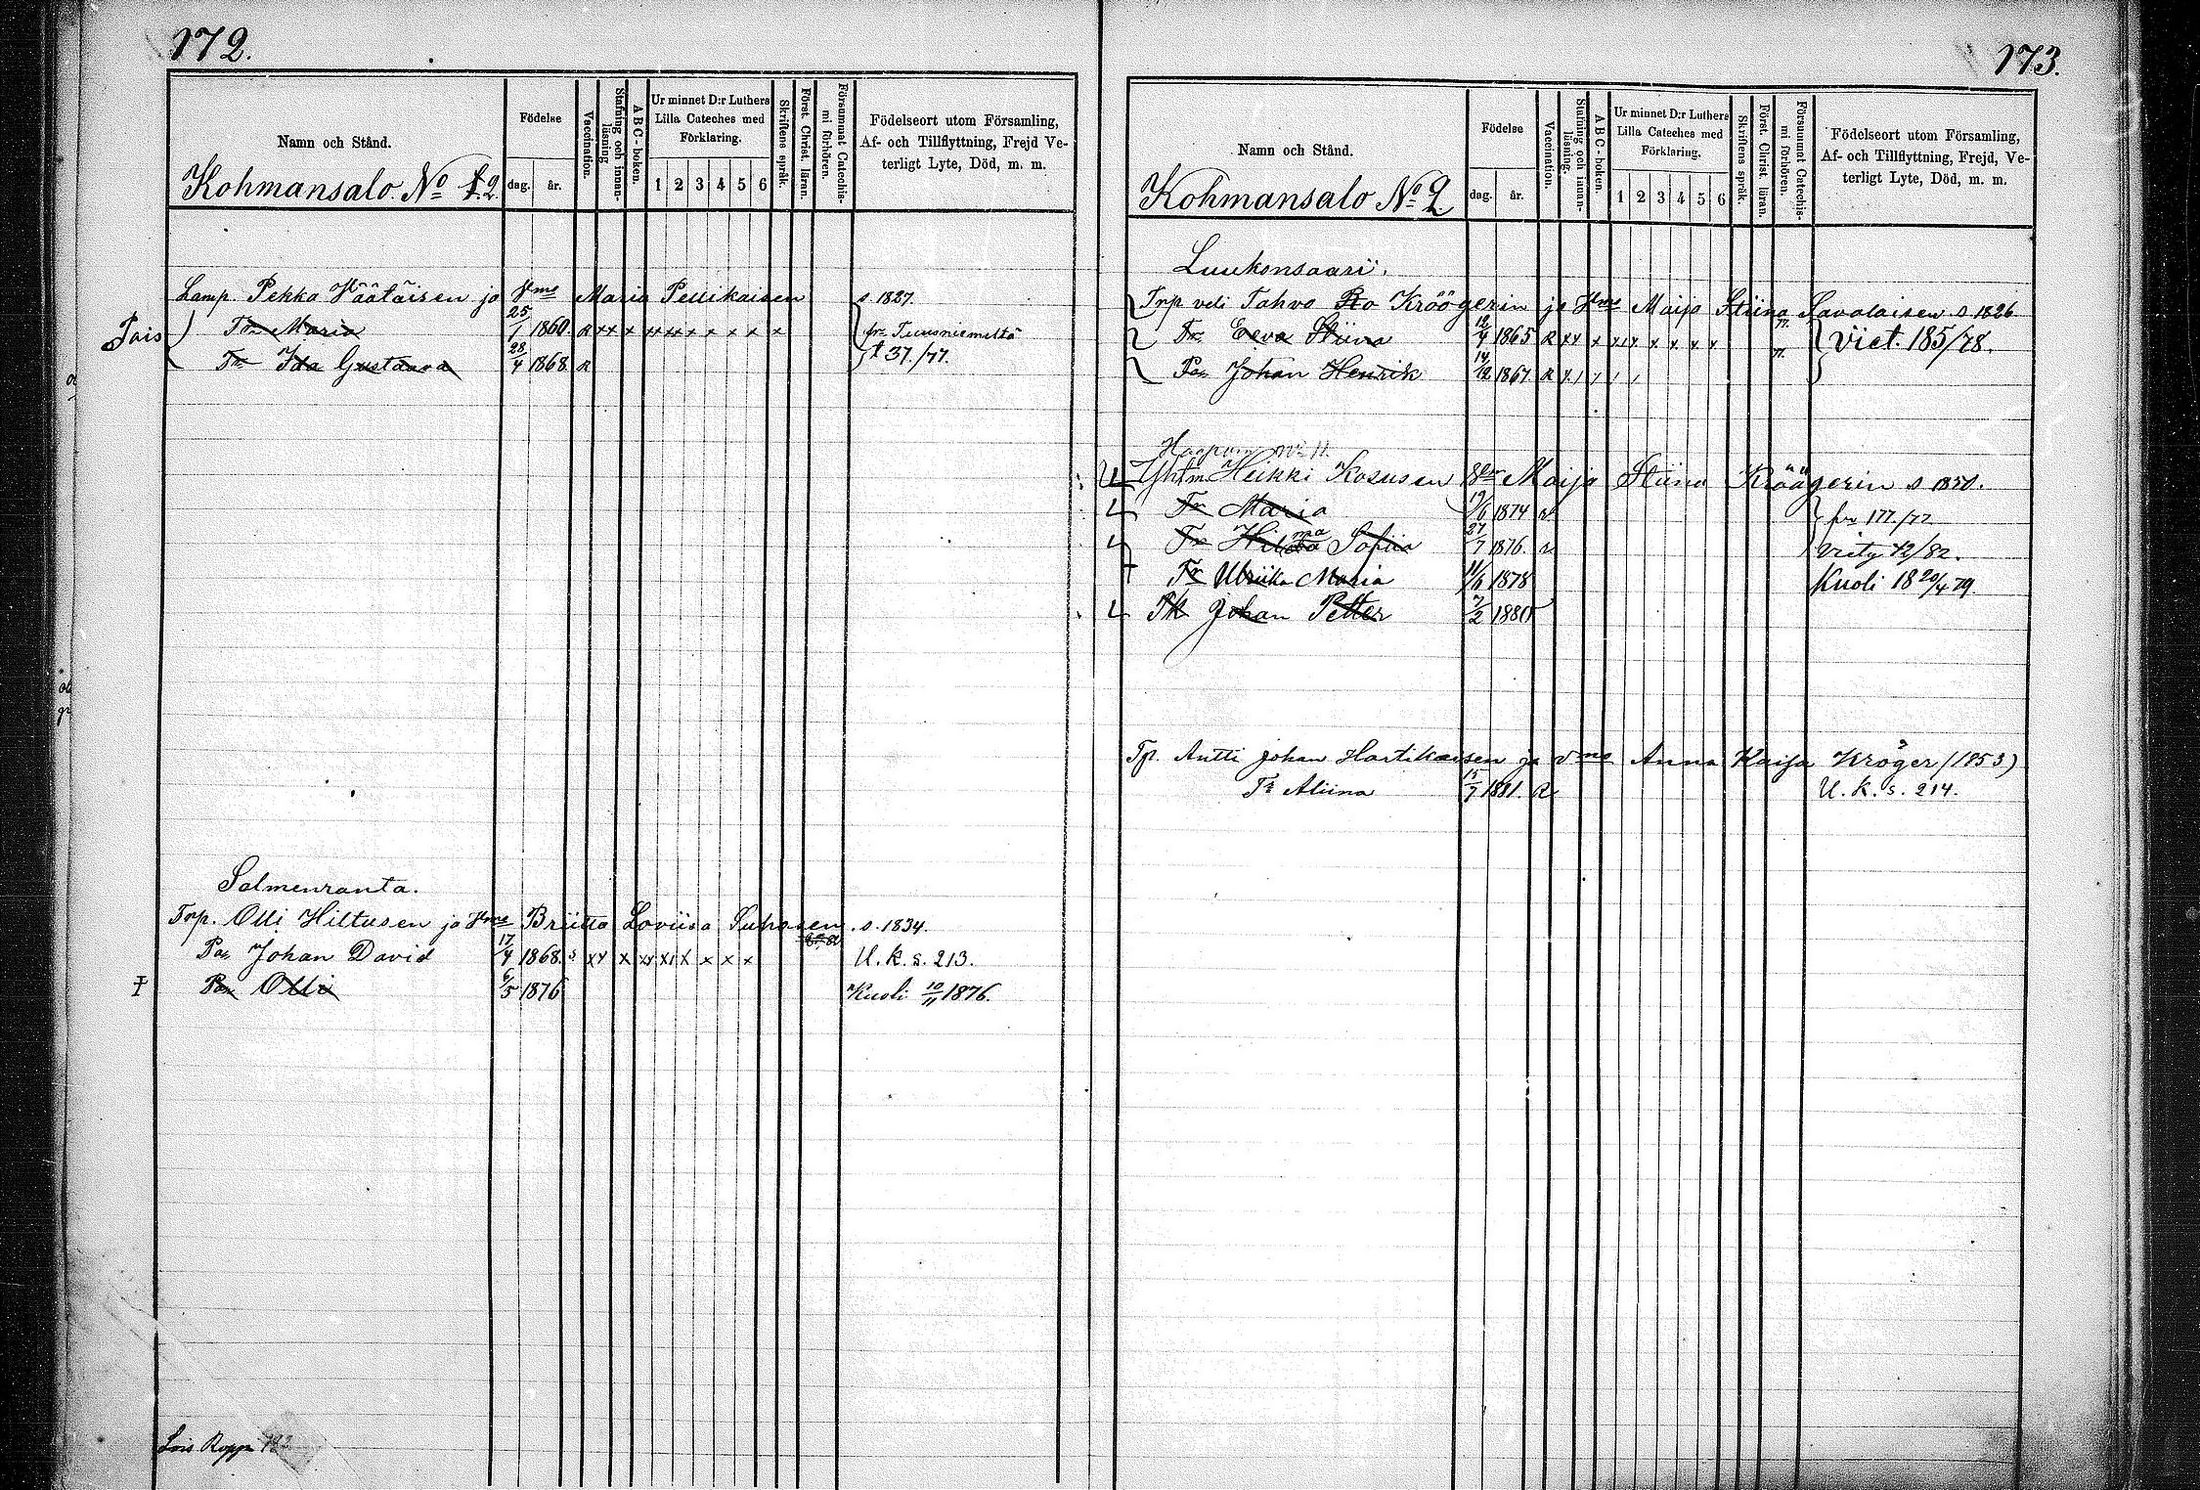 172.
Namn och Stånd.
Födelse
dag. år.
Vaccination.
Stafning och innan-läsning
ABC-boken.
Ur minnet D:r Luthers Lilla Cateches med Förklaring.
1 2 3 4 5 6
Skriftens språk.
Först. Christ. läran.
Försummat Catechis-mi förhören.
Födelseort utom Församling, Af- och Tillflyttning, Frejd Ve-terligt Lyte, Död, m. m.
Kohmansalo. No 2.
Lamp. Pekka Väätäisen ja Vmo Maria Pellikaisen s. 1827.
Pois Tr. Maria 25/1 1860. R xx x xx xx x x x x x fr. Tuusniemeltä
Tr. Ida Gustaava 28/4 1868. R † 37./77.
Salmenranta.
Trp. Olli Hiltusen ja Vmo Briitta Loviisa Suhosen. s. 1834.
Po. Johan David 17/4 1868. s xx x xx xx x x x x U. k. s. 213.
Po. Olli 6/5 1876 Kuoli 10/11 1876.
173.
Namn och Stånd.
Födelse
dag. år.
Vaccination.
Stafning och innan-läsning.
ABC-boken.
Ur minnet D:r Luthers Lilla Cateches med Förklaring.
1 2 3 4 5 6
Skriftens språk.
Först. Christ. läran.
Försummat Catechis-mi förhören.
Födelseort utom Församling, Af- och Tillflyttning, Frejd, Ve-terligt Lyte, Död, m. m.
Kohmansalo No 2
Luukonsaari.
Trp veli Tahvo Kröögerin ja Vmo Maija Stiina Savolaisen s 1826
Tr. Eeva Stiina 12/4 1865 R xx x x x x x x x 77. Viet. 185/78.
Po. Johan Henrik 14/12 1867. R x 77.
No 11.
Yhtm Heikki Kosusen Maija Stiina Kröögerin s 1850.
Tr Maria 19/6 1874 R fr 177./77
Tr Hilda Sofiia 27/7 1876. Viety 42/82.
Tr Ulriika Maria 11/6 1878 Kuoli 18 20/4 79.
Pk Johan Petter 7/2 1880
Tp. Antti Johan Hartikaisen ja Vmo Anna Kaisa Kröger (1853)
Tr Aliina 15/7 1881. R U. k. s. 214.